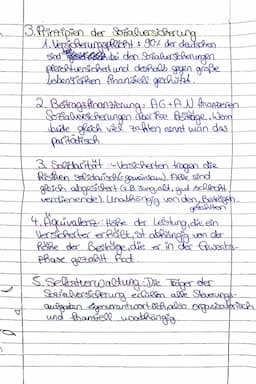 3. Prinzipien der Sozialversicherung
1. Versicherungspflicht: 90% der deutschen
sind bei den Sozialversicherungen
pflichtversichert und deshalb gegen große
Lebensrisiken finanziell geschützt.
2. Beitragsfinanzierung: AG + AN finanzieren
Sozialversicherungen über ihre Beiträge. Wenn
beide gleich viel zahlen nennt man das
paritätisch.
3. Solidarität: Versicherten tragen die
Risiken solidarisch (gemeinsam). Alle sind
gleich abgesichert (z.B. jung, alt, gut schlecht
verdienende). Unabhängig von den Beiträgen,
gezahlten
4. Äquivalenz: Höhe der Leistung, die ein
Versicherter erhält, ist abhängig von der
Höhe der Beiträge, die er in der Erwerbs-
phase gezahlt hat.
5. Selbstverwaltung: Die Träger der
Sozialversicherung erfüllen alle Steuerungs-
aufgaben eigenverantwortlich, also organisatorisch
und finanziell unabhängig.